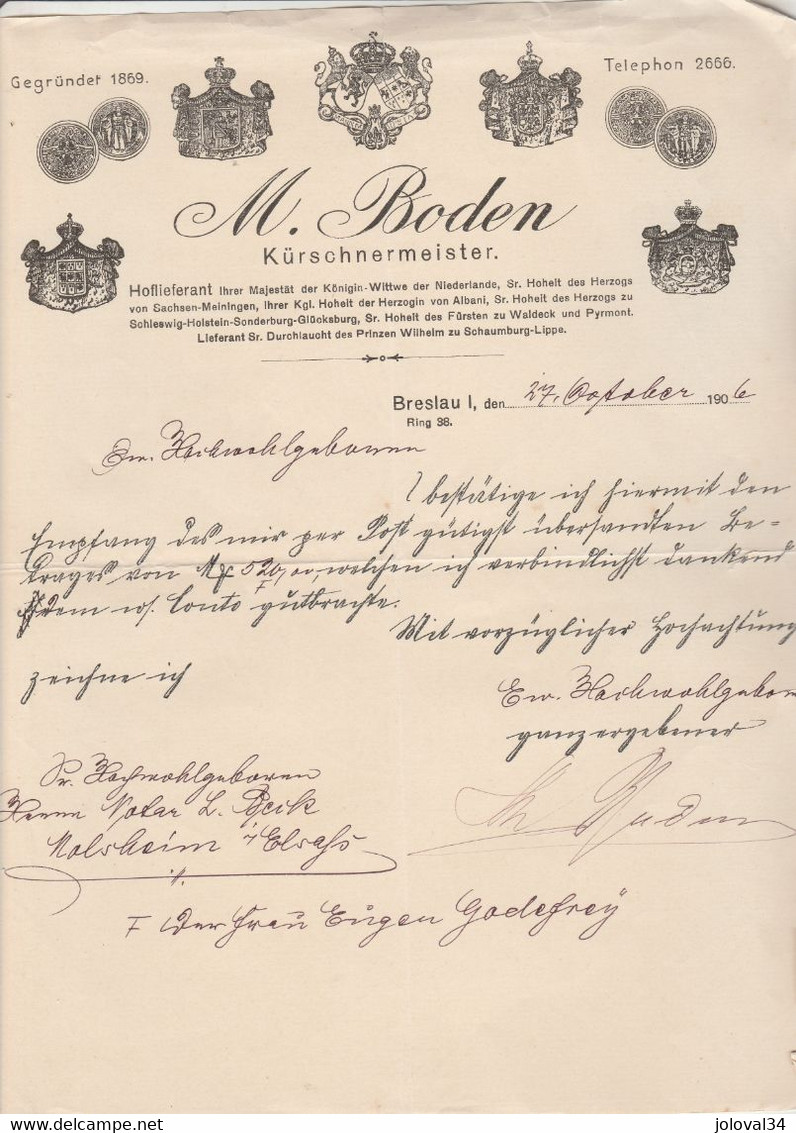 Gegründet 1869.
Telephon 2666.
M. Boden
Kürschnermeister.
Hoflieferant Ihrer Majestät der Königin-Wittwe der Niederlande, Sr. Hoheit des Herzogs
von Sachsen-Meiningen, Ihrer Kgl. Hoheit der Herzogin von Albani, Sr. Hoheit des Herzogs zu
Schleswig-Holstein-Sonderburg-Glücksburg, Sr. Hoheit des Fürsten zu Waldeck und Pyrmont.
Lieferant Sr. Durchlaucht des Prinzen Wilhelm zu Schaumburg-Lippe.
Breslau I, den 27. October 1906
Ring 38.
Ew. Hochwohlgeboren
bestätige ich hiermit den
Empfang des mir per Post gütigst übersandten Be-
trages von M 520,00, welchen ich verbindlichst dankend
dem Conto gutbrachte.
Mit vorzüglicher Hochachtung
zeichne ich
Ew. Hochwohlgebor
ganz ergebener
Sr. Hochwohlgeboren
Herrn Notar L.
Molsheim i/Elsaß
M. Boden
der Frau Eugen Godefrey
delcampe.net
joloval34